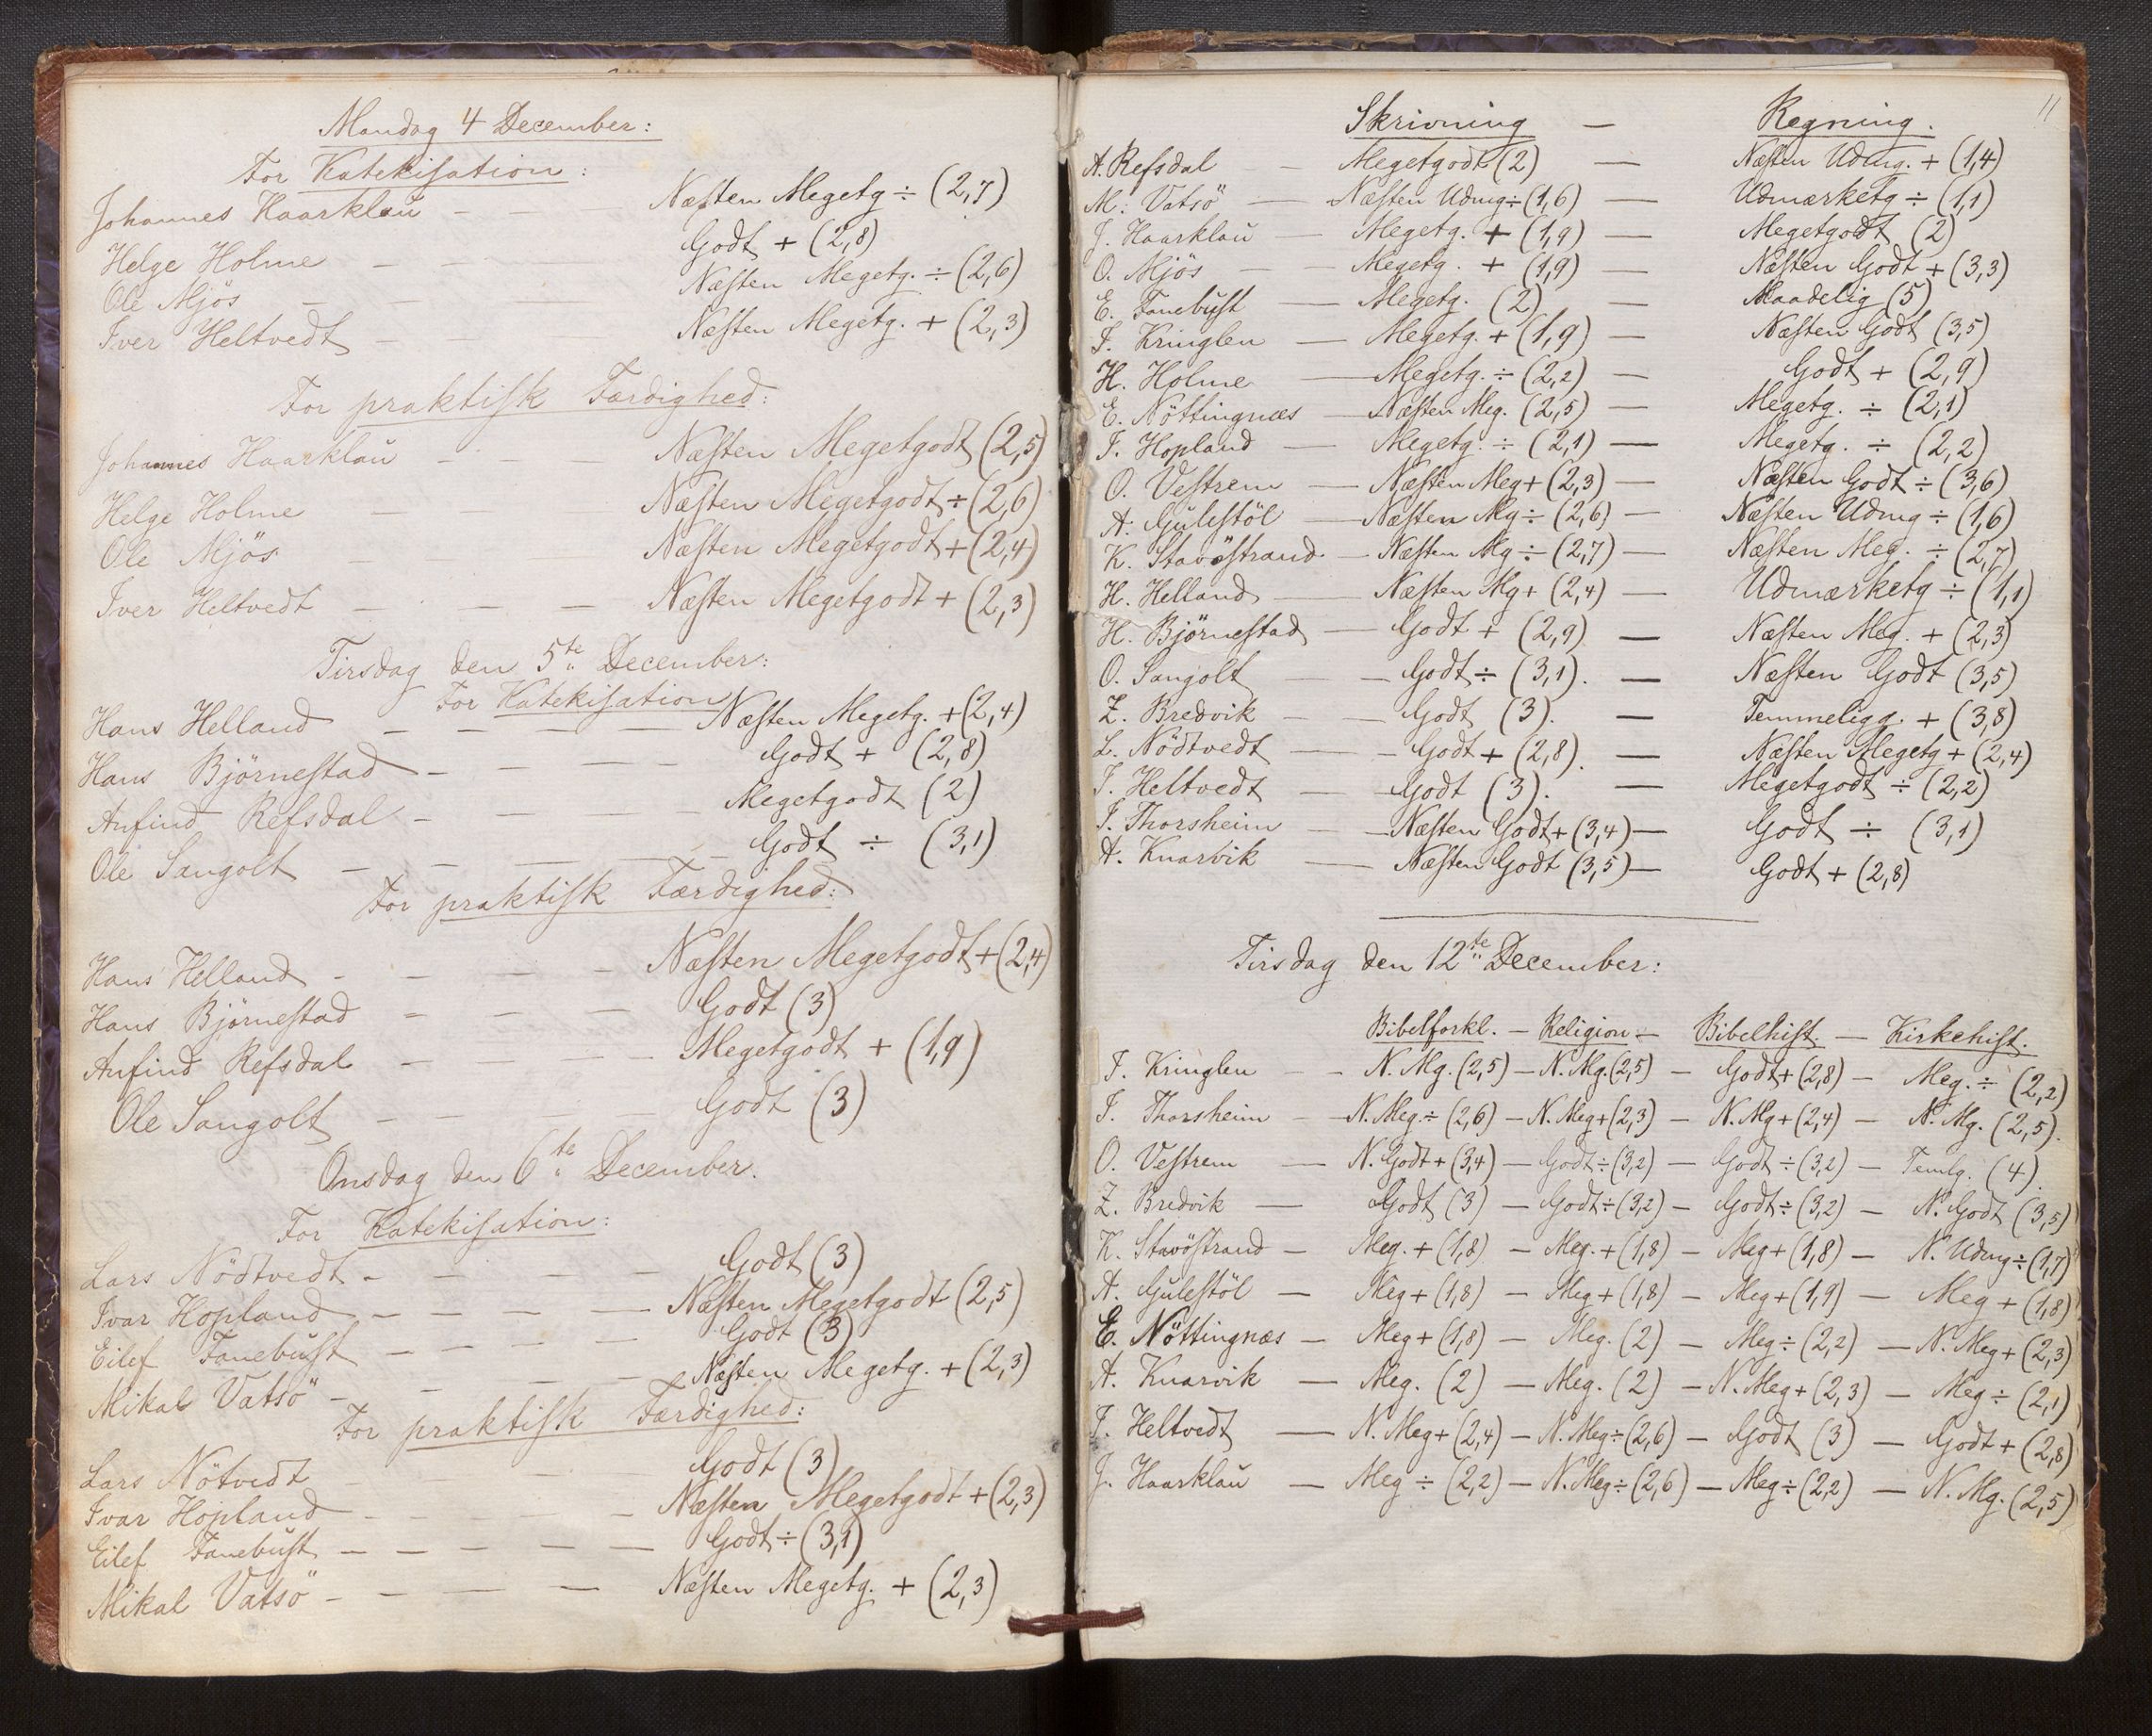 Mandag 4 December:
For Katekisation:
Johannes Haarklau - - - Næsten Megetg ÷ (2,7)
Helge Holme - - - Godt + (2,8)
Ole Mjös - - Næsten Megetg. ÷ (2,6)
Iver Heltvedt - - - Næsten Megetg. + (2,3)
For praktisk Færdighed:
Johannes Haarklau - - - Næsten Megetgodt (2,5)
Helge Holme - - Næsten Megetgodt ÷ (2,6)
Ole Mjös - - - Næsten Megetgodt + (2,4)
Iver Heltvedt - - - - Næsten Megetgodt + (2,3)
Tirsdag den 5te December:
For Katekisation
Hans Helland - - - - - Næsten Megetg. + (2,4)
Hans Björnestad - - - - Godt + (2,8)
Anfind Refsdal - - - - Megetgodt (2)
Ole Sangolt - - - - - Godt ÷ (3,1)
For praktisk Færdighed:
Hans Helland - - - - Næsten Megetgodt + (2,4)
Hans Björnestad - - - - Godt (3)
Anfind Refsdal - - - - Megetgodt + (1,9)
Ole Sangolt - - - - Godt (3)
Onsdag den 6te December.
For Katekisation:
Lars Nödtvedt - - - - - Godt (3)
Ivar Hopland - - - - - Næsten Megetgodt (2,5)
Eilef Fanebust - - - - - Godt (3)
Mikal Vatsö - - - - Næsten Megetg. + (2,3)
For praktisk Færdighed:
Lars Nötvedt - - Godt (3)
Ivar Hopland - - - - - Næsten Megetgodt + (2,3)
Eilef Fanebust - - - - - - Godt ÷ (3,1)
Mikal Vatsö - - - - - Næsten Megetg. + (2,3)
11
Skrivning — Regning.
A. Refsdal - Megetgodt (2) — Næsten Udmg. + (1,4)
M. Vatsö — Næsten Udmg ÷ (1,6) — Udmærketg ÷ (1,1)
J. Haarklau — Megetg. + (1,9) — Megetgodt (2)
O. Mjös - - Megetg. + (1,9) — Næsten Godt + (3,3)
E. Fanebust — Megetg. (2) — Maadelig (5)
F. Kringlen — Megetg. + (1,9) — Næsten Godt (3,5)
H. Holme — Megetg. ÷ (2,2) — Godt + (2,9)
E. Nöttingnæs — Næsten Meg. (2,5) — Megetg. ÷ (2,1)
I. Hopland — Megetg. ÷ (2,1) — Megetg. ÷ (2,2)
O. Vestrem — Næsten Meg + (2,3) — Næsten Godt ÷ (3,6)
A. Gulestöl — Næsten Mg ÷ (2,6) — Næsten Udmg ÷ (1,6)
K. Stavöstrand — Næsten Mg ÷ (2,7) — Næsten Meg. ÷ (2,7)
H. Helland — Næsten Mg + (2,4) — Udmærketg ÷ (1,1)
H. Björnestad — Godt + (2,9) — Næsten Meg. + (2,3)
O. Sangolt - - Godt ÷ (3,1). — Næsten Godt (3,5)
Z. Bredvik - - Godt (3). — Temmeligg. + (3,8)
L. Nödtvedt — - Godt + (2,8). — Næsten Megetg + (2,4)
I. Heltvedt — - Godt (3). — Megetgodt ÷ (2,2)
I. Thorsheim - — Næsten Godt + (3,4) — Godt ÷ (3,1)
A. Knarvik — Næsten Godt (3,5) — Godt + (2,8)
Tirsdag den 12te December:
Bibelforkl. — Religion — Bibelhist. — Kirkehist.
F. Kringlen - - N. Mg. (2,5) — N. Mg. (2,5) — Godt + (2,8) — Meg. ÷ (2,2)
I. Thorsheim — N. Meg. ÷ (2,6) — N. Meg + (2,3) — N. Mg + (2,4) — N. Mg. (2,5).
O. Vestrem — N. Godt + (3,4) — Godt ÷ (3,2) — Godt ÷ (3,2) — Temlg. (4).
Z. Bredvik — Godt (3) — Godt ÷ (3,2) — Godt ÷ (3,2) — N. Godt (3,5)
K. Stavöstrand — Meg. + (1,8) — Meg. + (1,8) — Meg + (1,8) — N. Udmg ÷ (1,7)
A. Gulestöl — Meg + (1,8) — Meg + (1,8) — Meg + (1,9) — Meg + (1,8)
E. Nöttingnæs — Meg + (1,8) — Meg. (2) — Meg ÷ (2,2) — N. Meg + (2,3)
A. Knarvik — Meg. (2) — Meg. (2) — N. Meg + (2,3) — Meg ÷ (2,1)
I. Heltvedt — N. Meg + (2,4) — N. Meg ÷ (2,6) — Godt (3) — Godt + (2,8)
J. Haarklau — Meg ÷ (2,2) — N. Meg ÷ (2,6) — Meg ÷ (2,2) — N. Mg. (2,5)